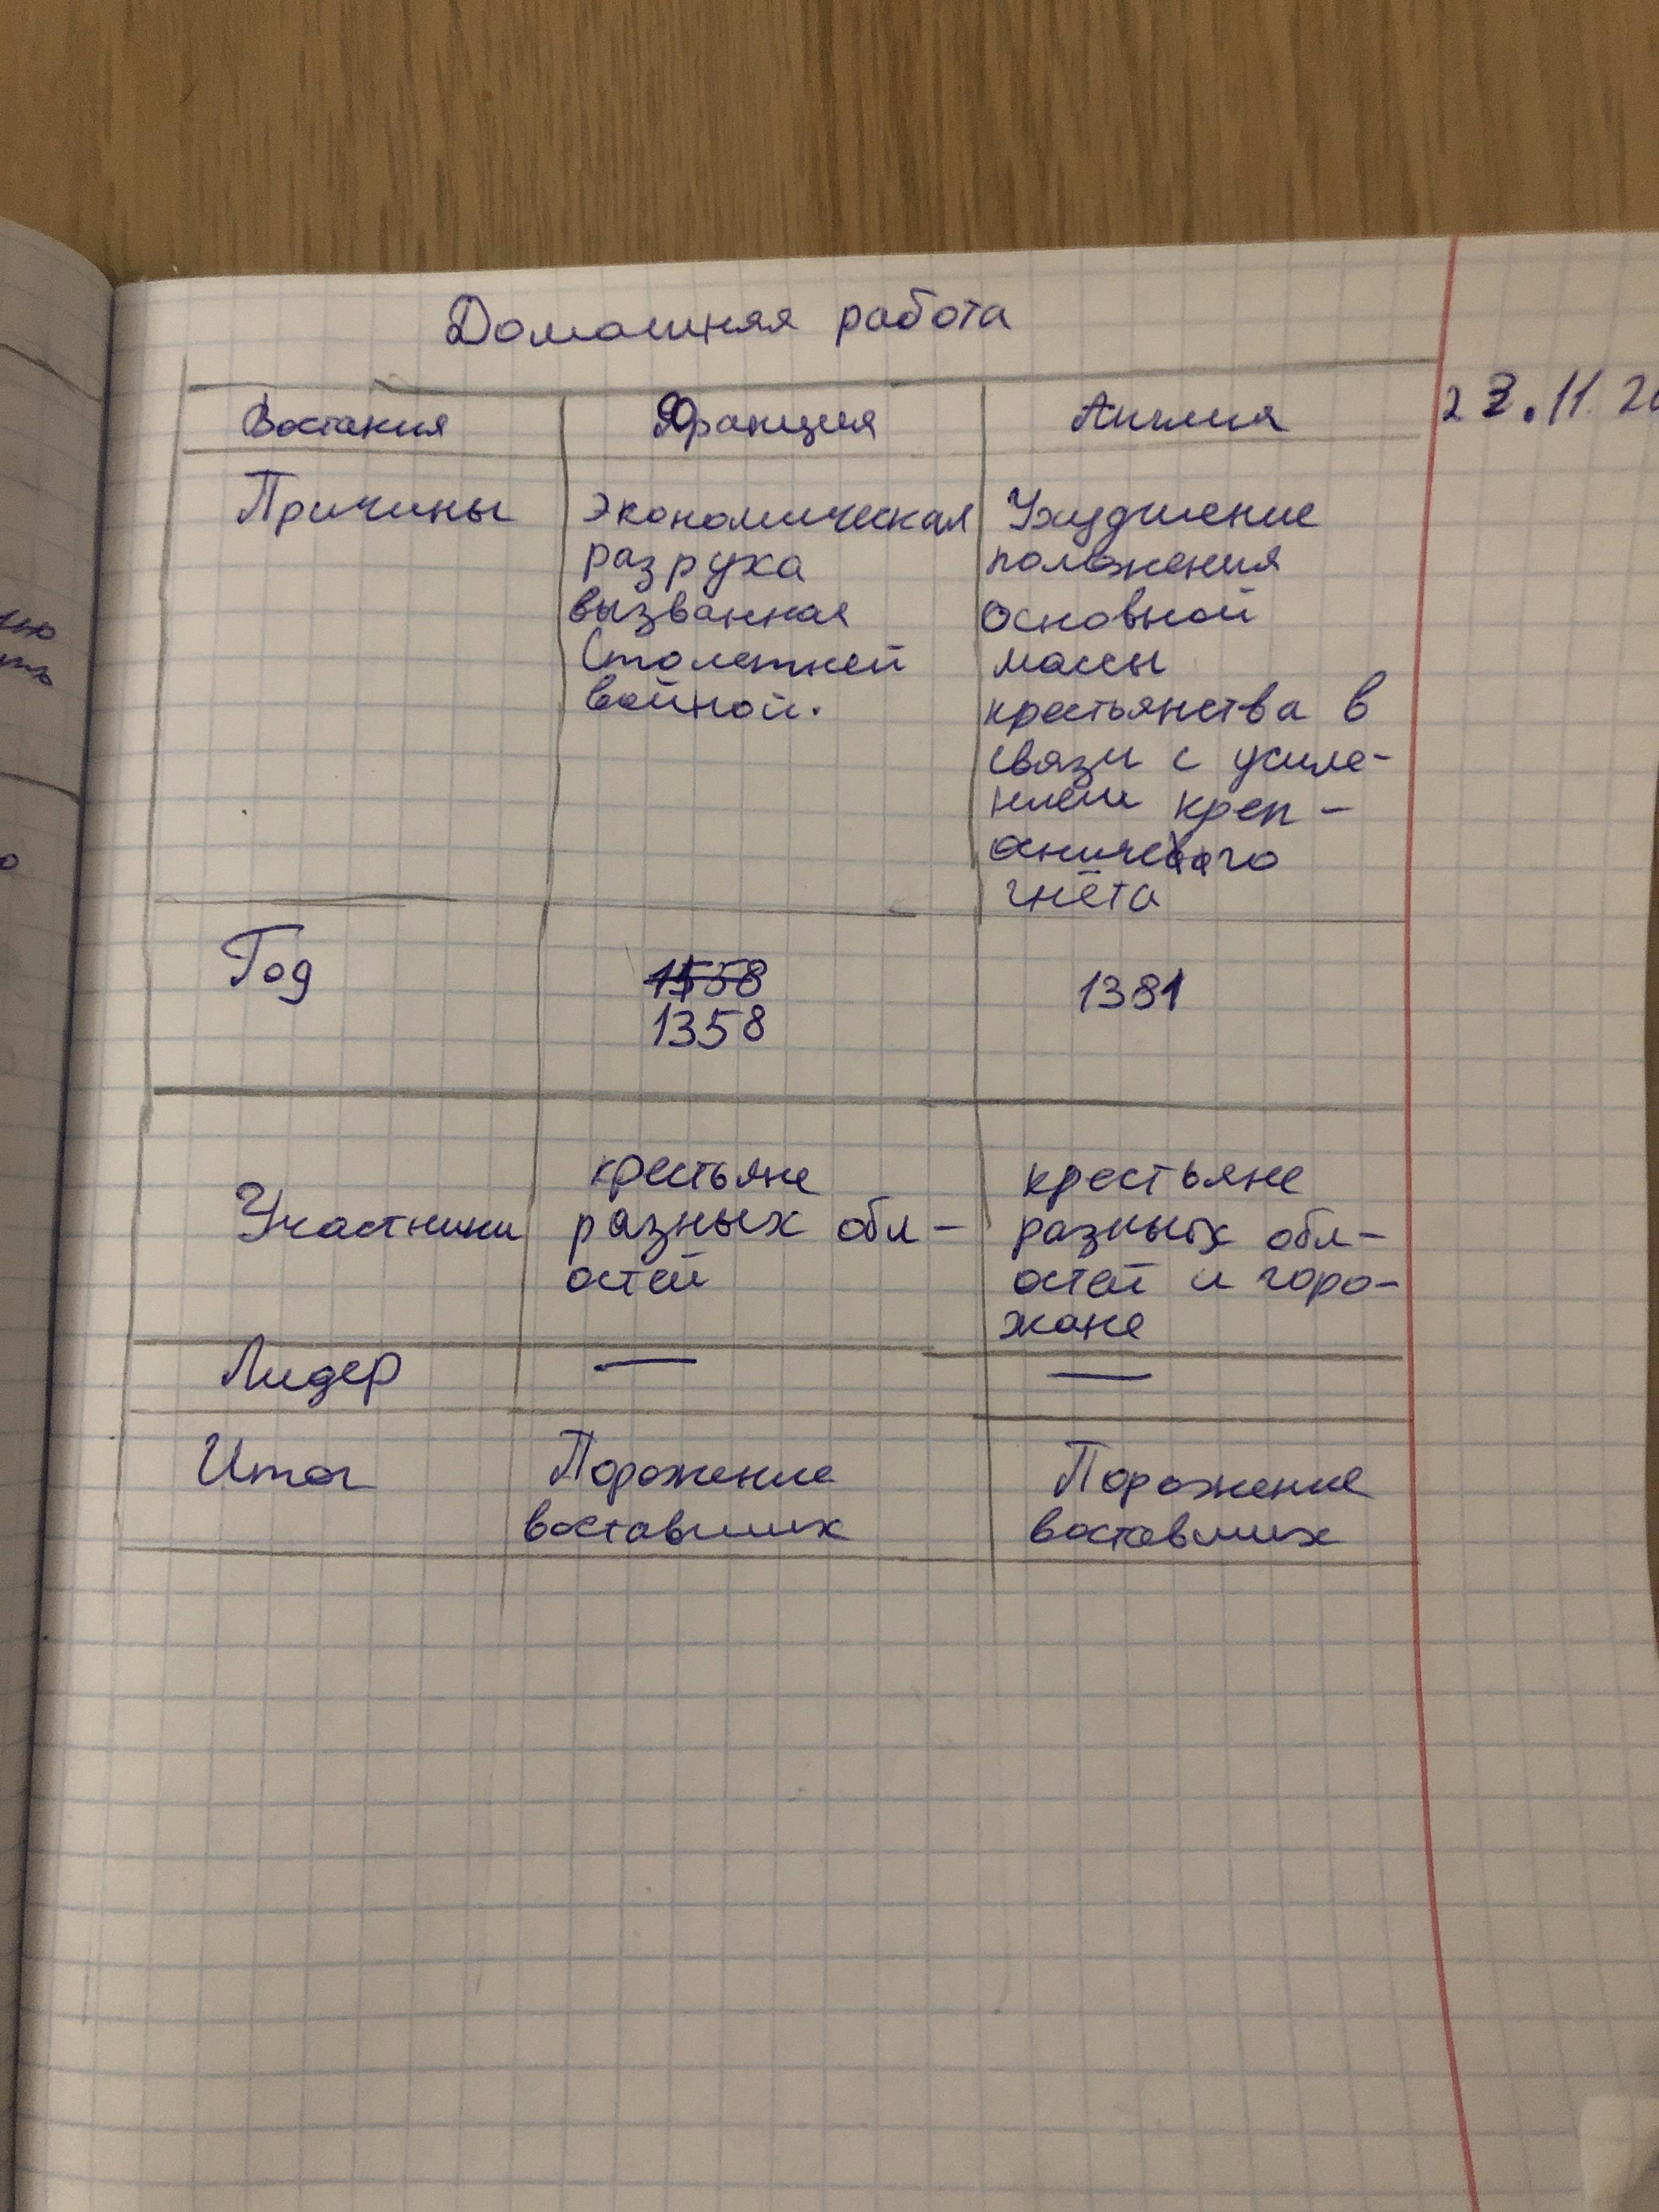 Домашняя работа
Востания Франция Англия
Причины Экономическая
разруха
вызванная
Столетней
войной.
Ухудшение
положения
основной
массы
крестьянства в
связи с усиле-
нием креп-
гнёта
Год 1358 1381
Участники
крестьяне
разных обл-
остей
крестьяне
разных обл-
остей и горо-
жане
Лидер — —
Итог Поражение
воставших
Поражение
воставших